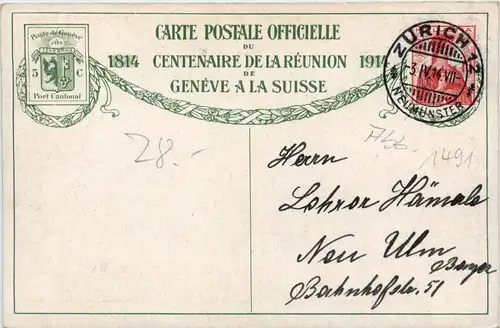 Poste de Genève
5 C
Port Cantonal
CARTE POSTALE OFFICIELLE
DU
1814 CENTENAIRE DE LA RÉUNION 1914
DE
GENÈVE A LA SUISSE
ZÜRICH 12
3.IV.14.VII
NEUMÜNSTER
28.-
1491
Herrn
Lehrer Hämale
Neu Ulm
Bayer
Bahnhofstr. 51